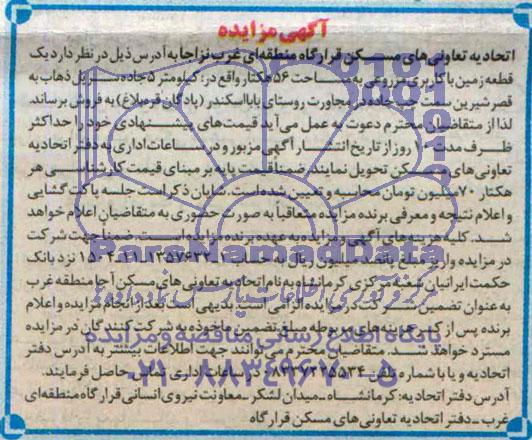 آگهی مزایده
اتحادیه تعاونی‌های مسکن قرارگاه منطقه‌ای غرب نزاجا به آدرس ذیل در نظر دارد یک
قطعه زمین با کاربری مزروعی به مساحت ۵۶ هکتار واقع در: کیلومتر ۵ جاده سرپل ذهاب به
قصرشیرین سمت چپ جاده در مجاورت روستای بابااسکندر (پادگان قره‌بلاغ) به فروش برساند.
لذا از متقاضیان محترم دعوت به عمل می‌آید قیمت‌های پیشنهادی خود را حداکثر
ظرف مدت ۱۰ روز از تاریخ انتشار آگهی مزبور و در ساعات اداری به دفتر اتحادیه
تعاونی‌های مسکن تحویل نمایند. ضمناً قیمت پایه بر مبنای قیمت کارشناسی هر
هکتار ۷۰ میلیون تومان محاسبه و تعیین شده است. شایان ذکر است جلسه پاکت گشایی
و اعلام نتیجه و معرفی برنده مزایده متعاقباً به صورت حضوری به متقاضیان اعلام خواهد
شد. کلیه هزینه‌های آگهی و مزایده به عهده برنده مزایده است. ضمناً جهت شرکت
در مزایده واریز مبلغ پانصد میلیون ریال به حساب نزد بانک
حکمت ایرانیان شعبه مرکزی کرمانشاه به نام اتحادیه تعاونی‌های مسکن آجا منطقه غرب
به عنوان تضمین شرکت در مزایده الزامی است. بدیهی است بعد از انجام مزایده و اعلام
برنده پس از کسر هزینه‌های مربوطه مبلغ تضمین ماخوذه به شرکت کنندگان در مزایده
مسترد خواهد شد. متقاضیان محترم می‌توانند جهت اطلاعات بیشتر به آدرس دفتر
اتحادیه و یا با شماره تلفن در ساعات اداری تماس حاصل فرمایند.
آدرس دفتر اتحادیه: کرمانشاه ـ میدان لشکر ـ معاونت نیروی انسانی قرارگاه منطقه‌ای
غرب ـ دفتر اتحادیه تعاونی‌های مسکن قرارگاه
ParsNamadData
پایگاه اطلاع رسانی مناقصه و مزایده
۰۲۱-۸۸۳۴۹۶۷۰-۵